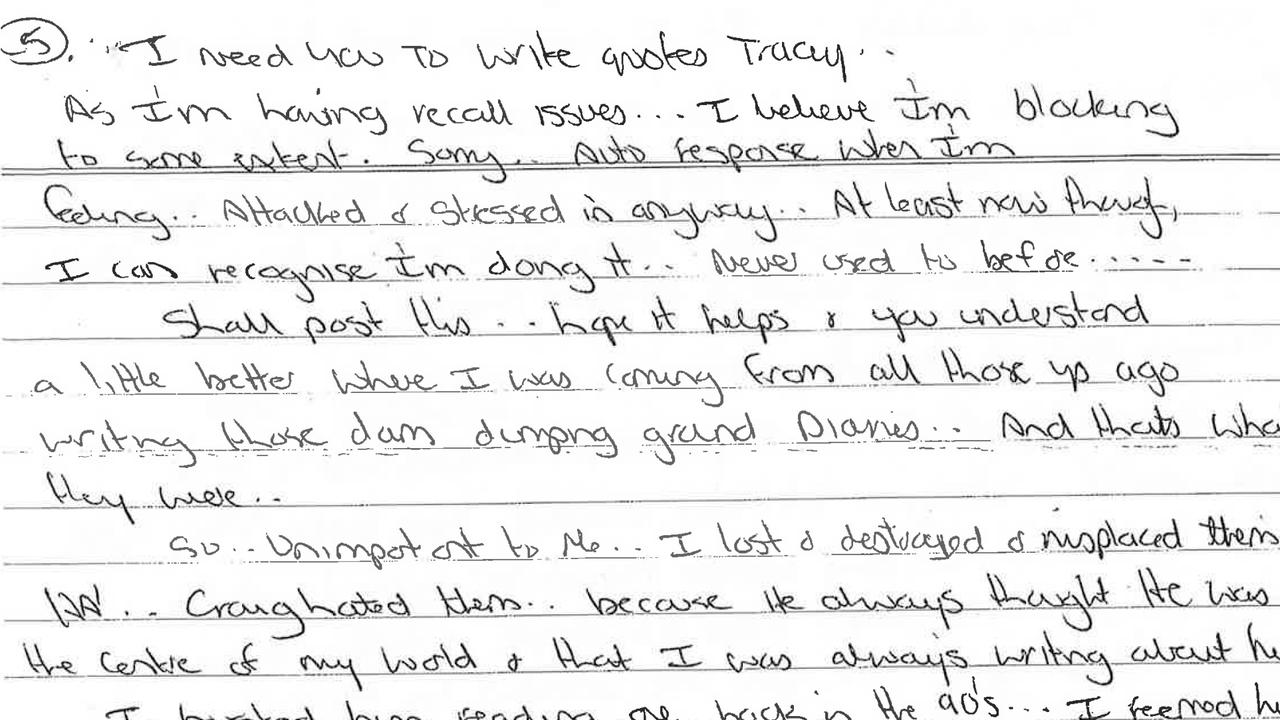 5. "I need you to write quotes Tracy..
As I'm having recall issues... I believe I'm blocking
to some extent. Sorry.. Auto response when I'm
feeling.. Attacked & stressed in anyway.. At least now though,
I can recognise I'm doing it... Never used to before.....
Shall post this... hope it helps & you understand
a little better where I was coming from all those yrs ago
writing those dam dumping ground Diaries.. And thats wha
they were..
So.. Unimportant to Me.. I lost & destroyed & misplaced them
Craig hated them.. because He always thought He was
the centre of my world & that I was always writing about h
I him reading one back in the 90's... I